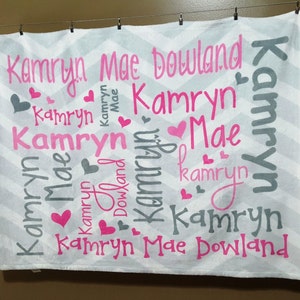 Kamryn Mae Dowland
Kamryn
Kamryn
Mae
Kamryn
Mae
Kamryn
Kamryn
Kamryn
Mae
Kamryn
Dowland
Kamryn
kamryn
Kamryn
Kamryn Mae Dowland